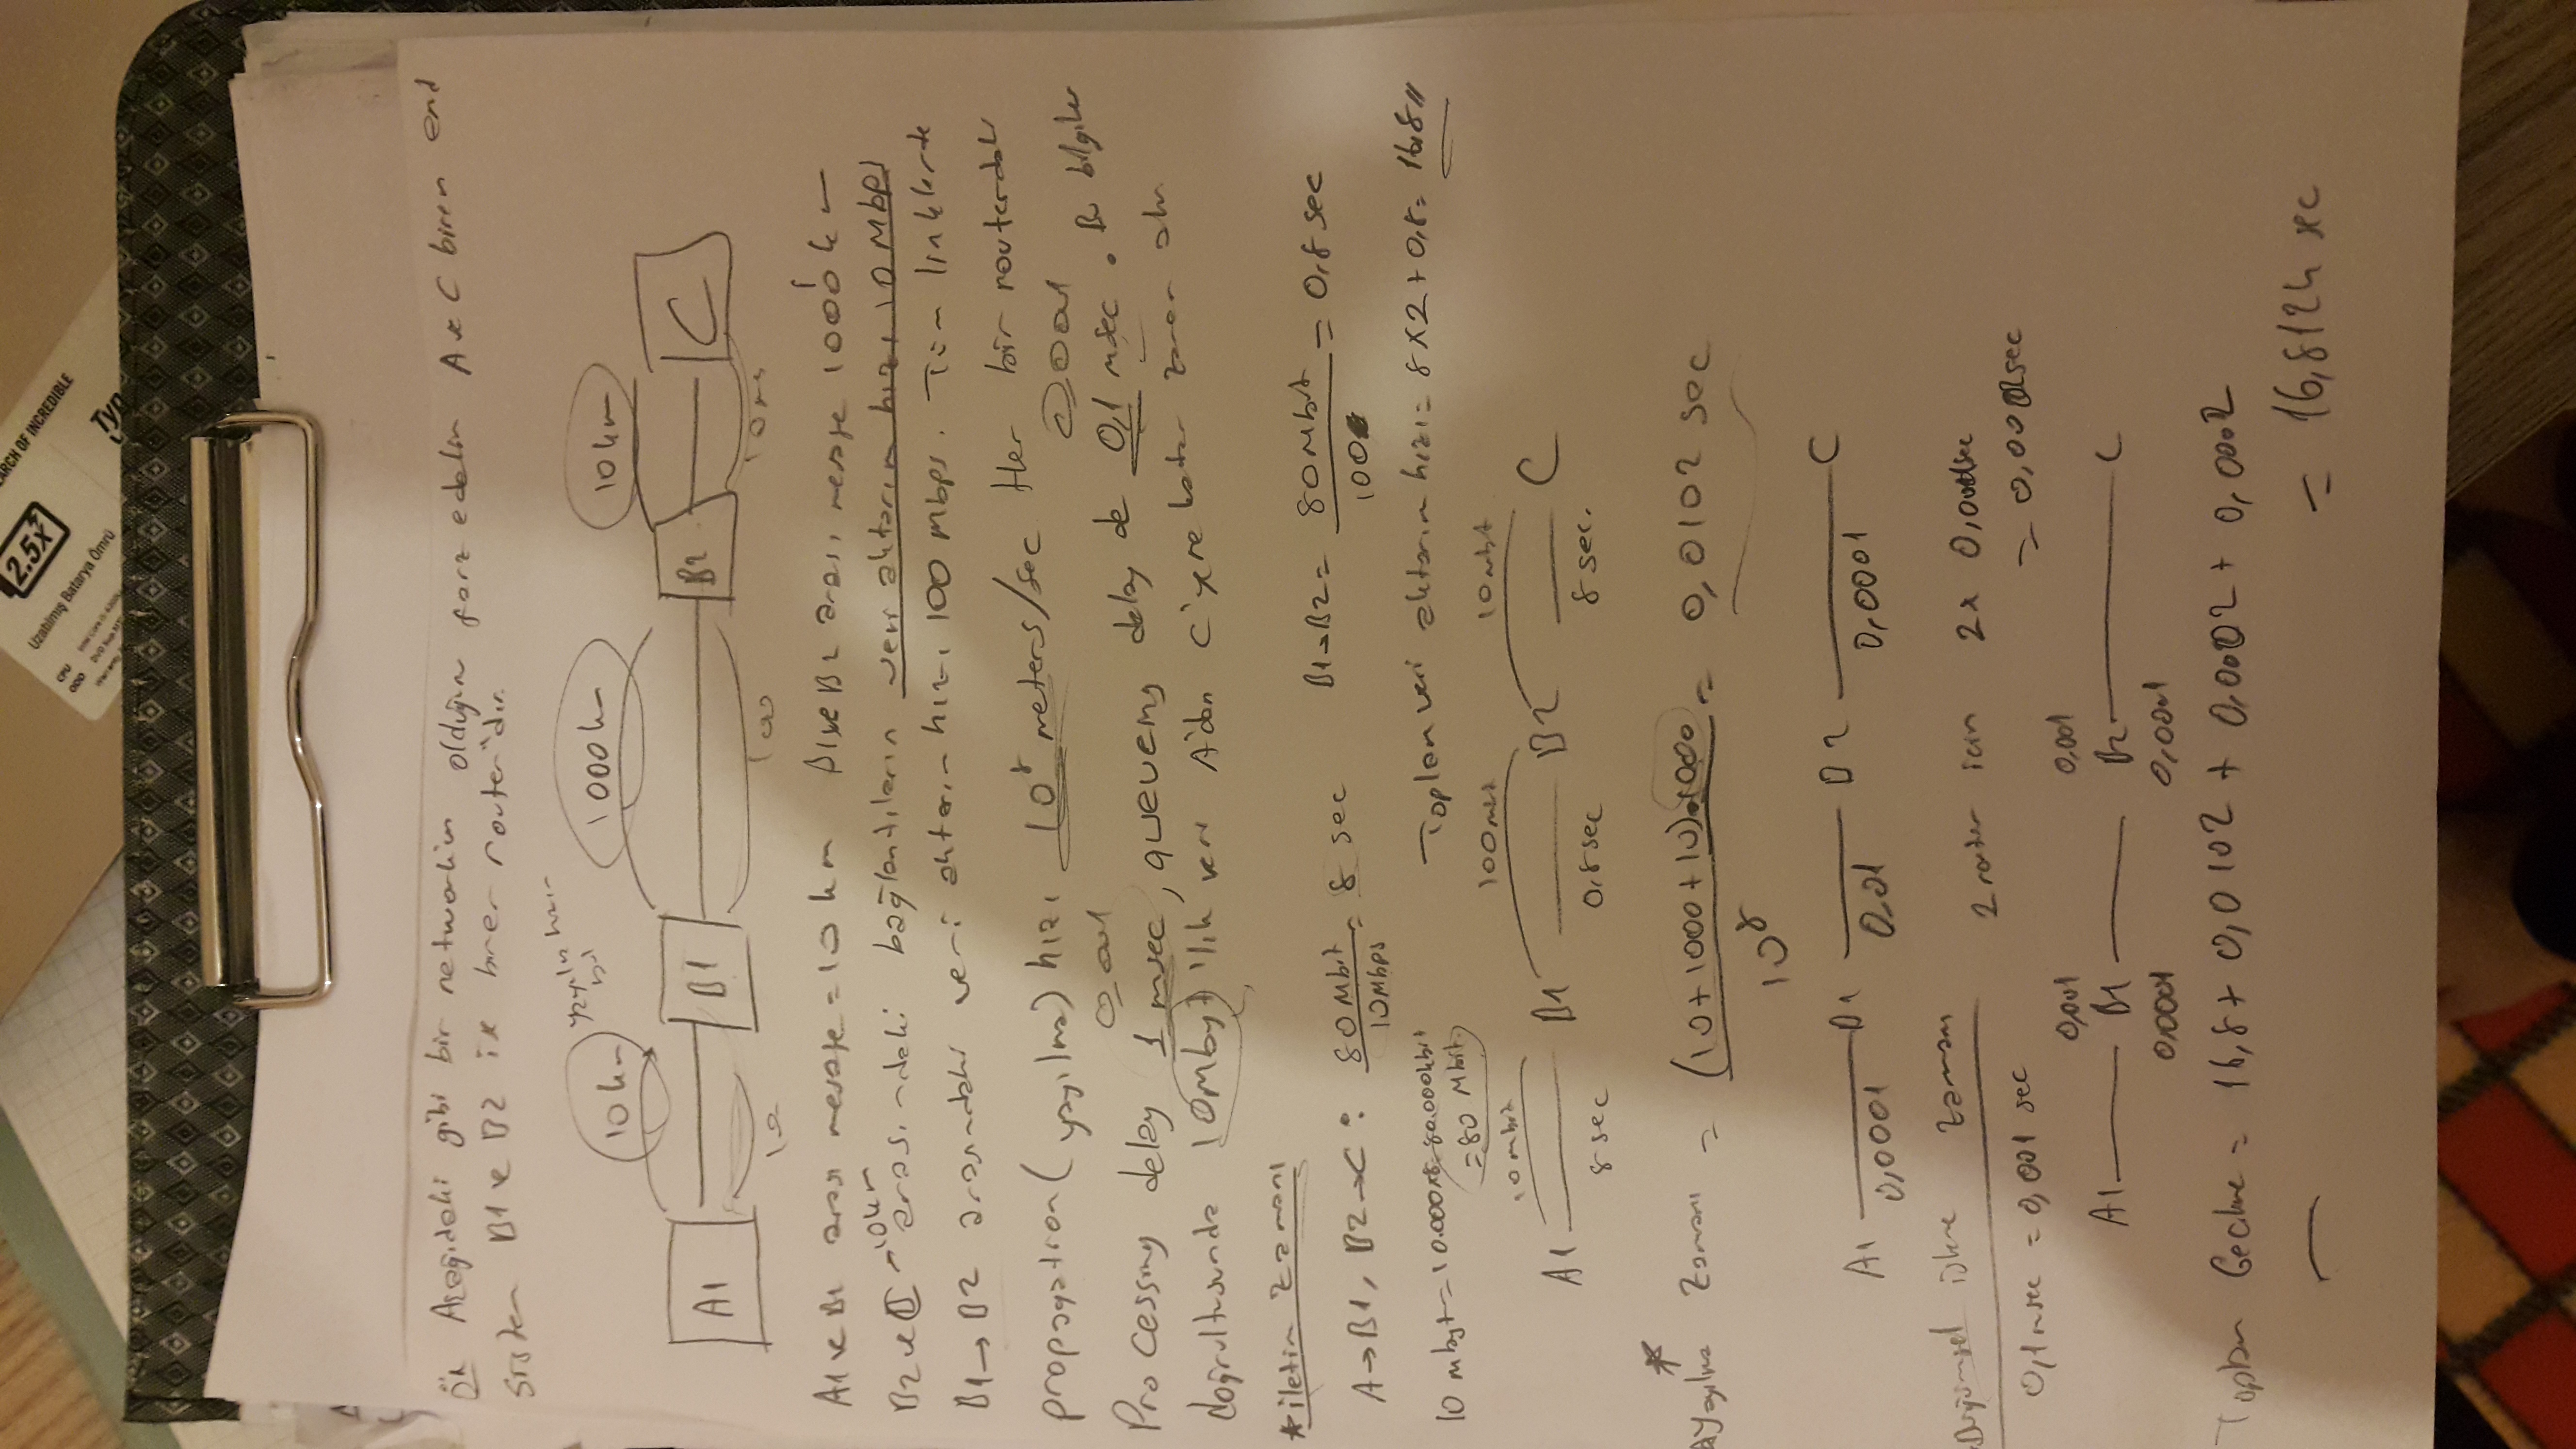 2.5x
ARCH OF INCREDIBLE
Uzatılmış Batarya Ömrü
CPU
ODD
Typ
Ör Aşağıdaki gibi bir networkün olduğunu farz edelim A ve C birer end
sistem B1 ve B2 ise birer router"dır.
10 km
yayılma hızını bul
1000 km
10 km
A1
B1
B2
C
10
100
A1 ve B1 arası mesafe = 10 km B1 ve B2 arası mesafe 1000 km
B2 ve C → 10 km arasındaki bağlantıların veri aktarım hızı 10 Mbps
B1→B2 arasındaki veri aktarım hızı 100 Mbps. Tüm linklerde
propagation (yayılma) hızı 10^8 meters/sec Her bir routerdaki
0,001
0,0001
Processing delay 1 msec, queueing delay de 0,1 msec. Bu bilgiler
doğrultusunda 10Mbyt'lık veri A'dan C'ye ne kadar zaman alır
* iletim Zamanı
A→B1, B2→C: 80 Mbit / 10Mbps = 8 sec B1→B2 = 80 Mbit / 100 = 0,8 sec
10 mbyt = 10.000x8=80.000kbit
= 80 Mbit
Toplam veri aktarım hızı = 8x2+0,8= 16,8
10 mbit
100mbit
10 mbit
A1
B1
B2
C
8 sec
0,8 sec
8 sec.
*
Yayılma Zamanı = (10+1000+10).1000 / 10^8 = 0,0102 sec
A1 B1 B2 C
0,0001
0,01
0,0001
Düğümsel işleme zamanı
2 router için 2x 0,0001sec
0,1msec = 0,001 sec
= 0,0002sec
0,001
0,001
A1 B1 B2 C
0,0001
0,0001
Toplam Gecikme = 16,8 + 0,0102 + 0,0002 + 0,0002
= 16,8124 sec